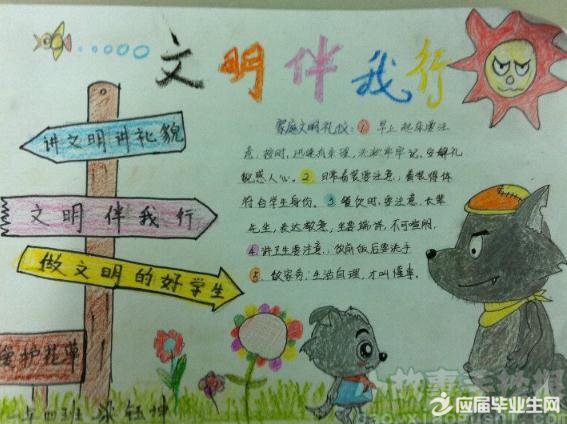 文明伴我行
讲文明讲礼貌
文明伴我行
做文明的好学生
爱护花草
家庭文明礼仪：1 早上起床要注
意，按时、迅速有条理，
人心。2 日常着装要注意，着装得体
符合学生身份。3 餐饮时，要注意，长辈
先坐，表达敬意，坐要端
4 讲卫生要注意，饭前饭后要洗手
5 做家务，生活自理，才叫懂事。
应届毕业生网